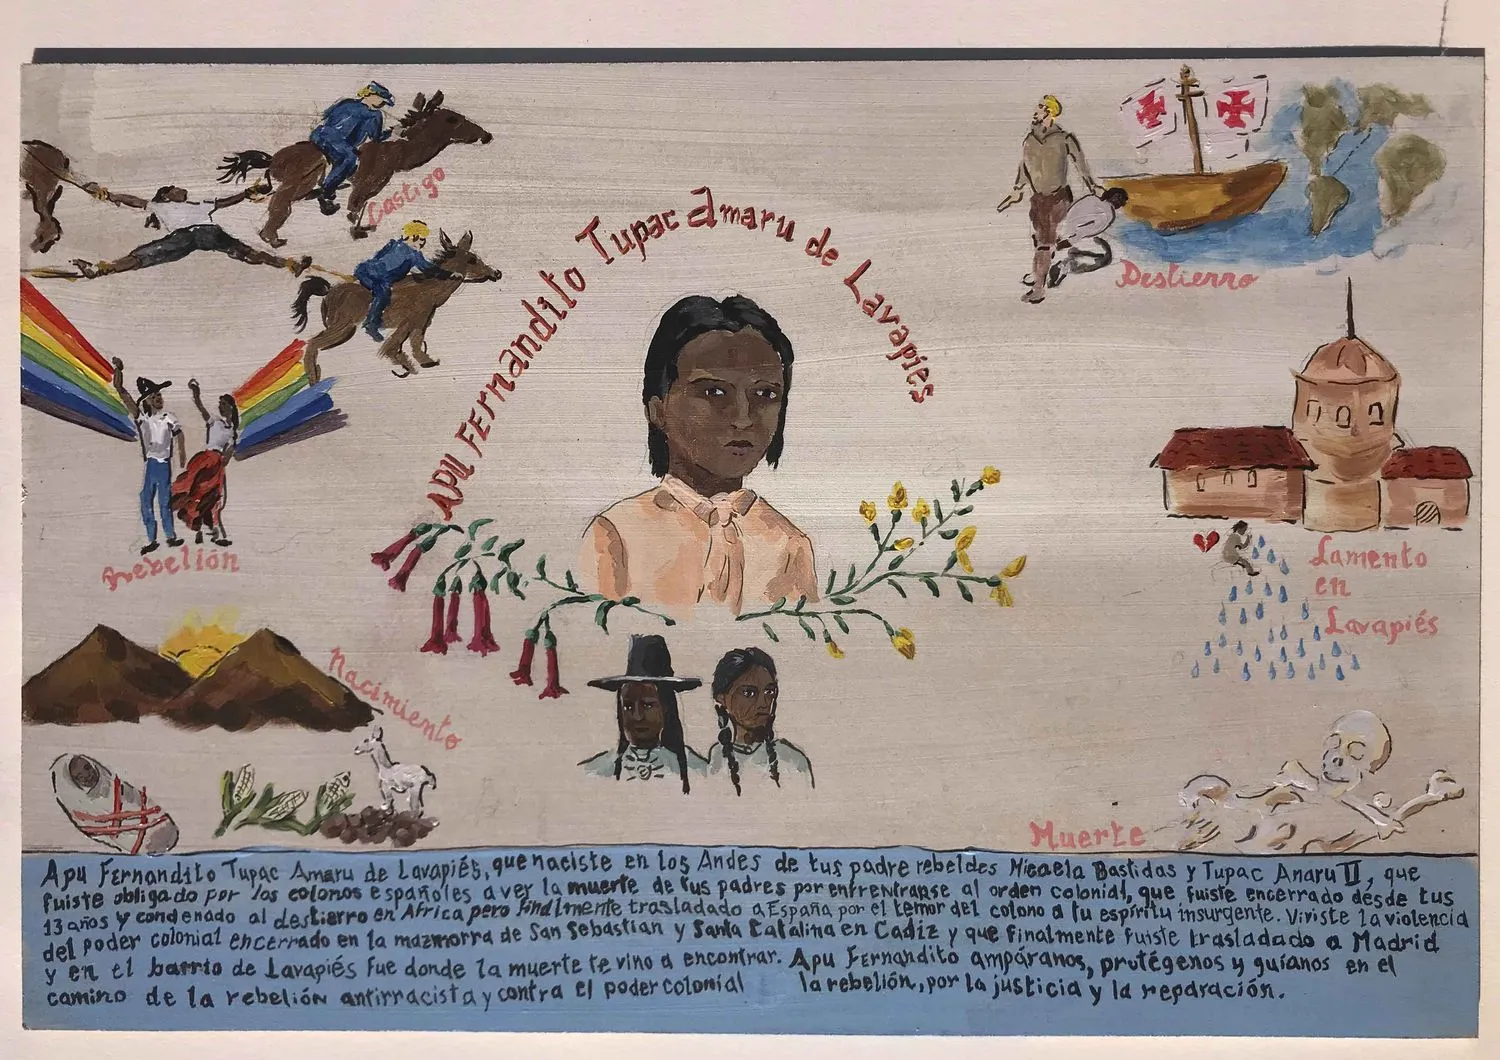 APU Fernandito Tupac Amaru de Lavapiés
Castigo
Destierro
Rebelión
Lamento
en
Lavapiés
Nacimiento
Muerte
Apu Fernandito Tupac Amaru de Lavapiés, que naciste en los Andes de tus padre rebeldes Micaela Bastidas y Tupac Amaru II, que
fuiste obligado por los colonos españoles a ver la muerte de tus padres por enfrentranse al orden colonial, que fuiste encerrado desde tus
13 años y condenado al destierro en Africa pero finalmente trasladado a España por el temor del colono a tu espíritu insurgente. Viviste la violencia
del poder colonial encerrado en la mazmorra de San Sebastian y Santa Catalina en Cadiz y que finalmente fuiste trasladado a Madrid
y en el barrio de Lavapiés fue donde la muerte te vino a encontrar. Apu Fernandito ampáranos, protégenos y guíanos en el
camino de la rebelión antirracista y contra el poder colonial la rebelión, por la justicia y la reparación.